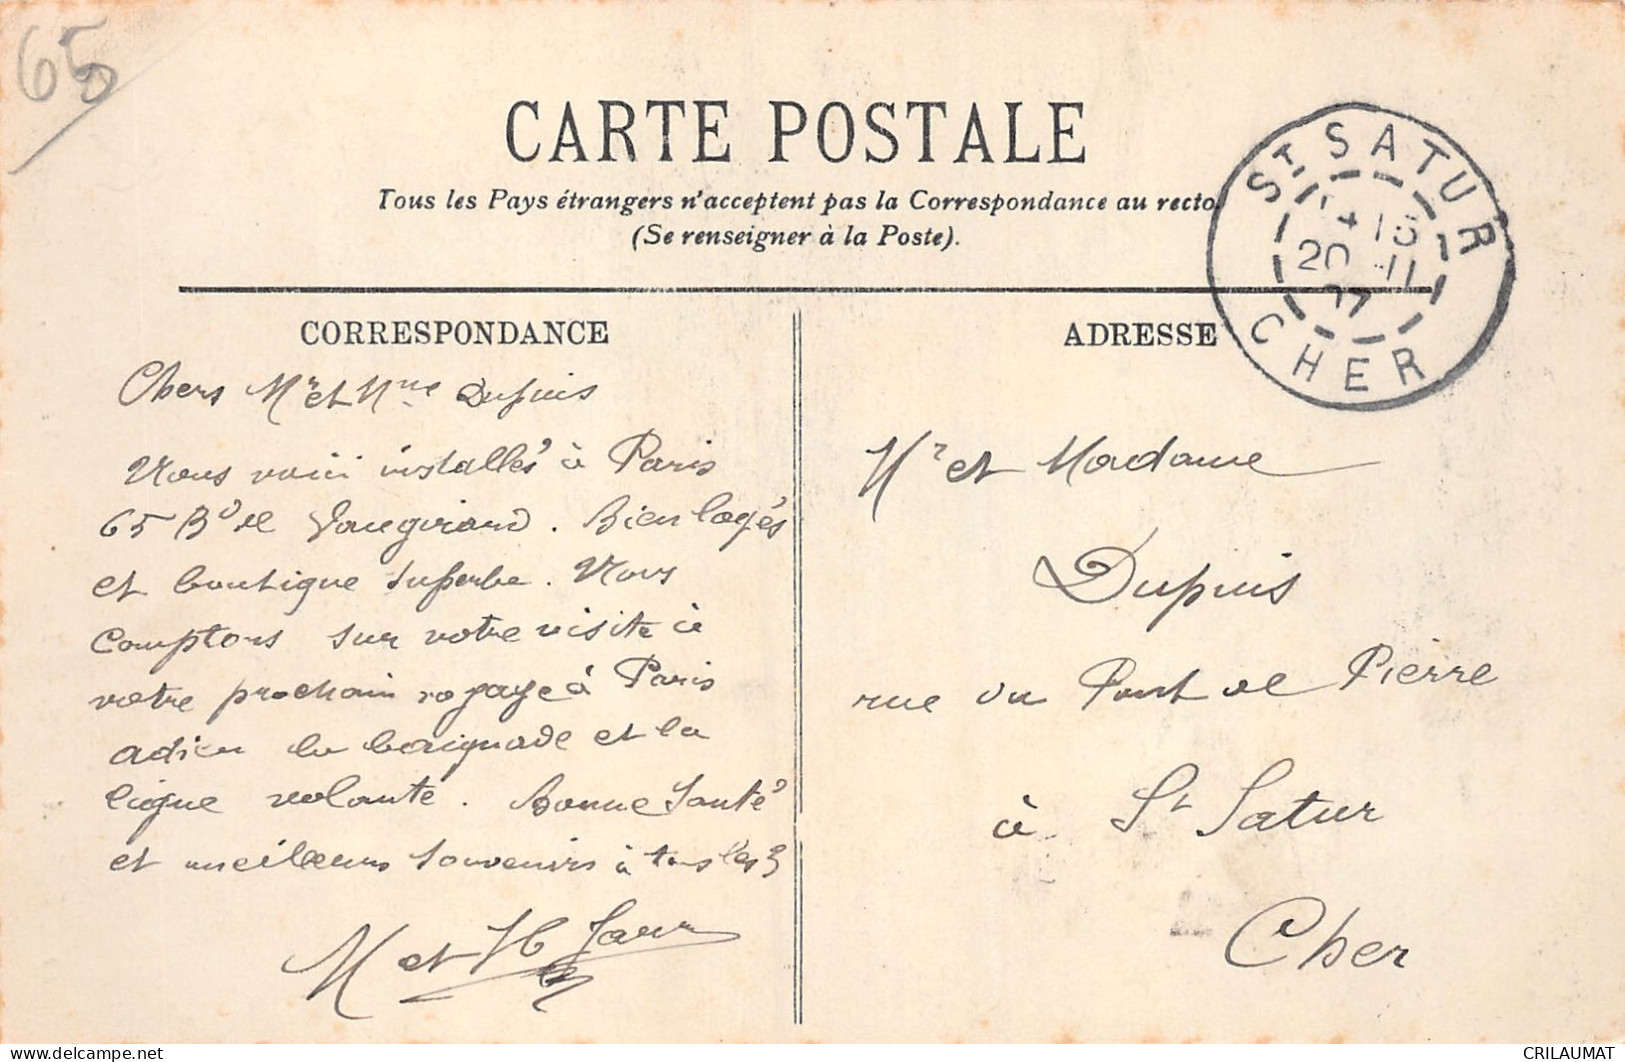 65
CARTE POSTALE
Tous les Pays étrangers n'acceptent pas la Correspondance au recto
(Se renseigner à la Poste).
ST SATUR
15
20 11
07
CHER
CORRESPONDANCE
Chers Mr et Mme Dupuis
Nous voici installés à Paris
65 Bd de Vaugirard. Bien logés
et boutique superbe. Nous
comptons sur votre visite à
votre prochain voyage à Paris
adieu la baignade et la
ligne volante. Bonne Santé
et meilleurs souvenirs à tous les 3
M et H
ADRESSE
Mr et Madame
Dupuis
rue du Pont de Pierre
à St Satur
Cher
CRILAUMAT